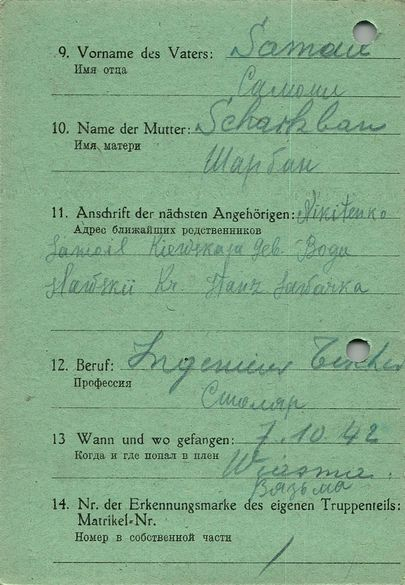 9. Vorname des Vaters: Samoil
Имя отца
Самоил
10. Name der Mutter: Scharban
Имя матери
Шарбан
11. Anschrift der nächsten Angehörigen: Nikitenko
Адрес ближайших родственников
Samoil Kiewskaja Geb.
Kr.
12. Beruf: Ingenieur Tischler
Профессия
Столяр
13 Wann und wo gefangen: 7.10.42
Когда и где попал в плен
Wiasma
Вязьма
14. Nr. der Erkennungsmarke des eigenen Truppenteils:
Matrikel-Nr.
Номер в собственной части
/